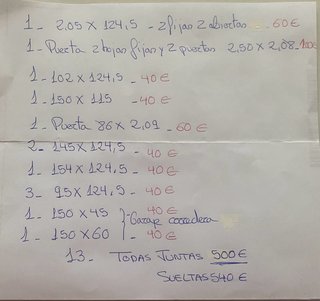 1 - 2.05 X 124,5 - 2 fijas 2 abiertas - 60 €
1 - Puerta 2 hojas fijas y 2 puertas 2,50 X 2,08 - 100€
1 - 102 X 124,5 - 40 €
1 - 150 X 115 - 40 €
1 - Puerta 86 X 2,09 - 60 €
2 - 145 X 124,5 - 40 €
1 - 154 X 124,5 - 40 €
3 - 95 X 124,5 - 40 €
1 - 150 X 45 40 €
} - Garaje corredera
1 - 150 X 60 - 40 €
13 - TODAS JUNTAS 500 €
SUELTAS 540 €